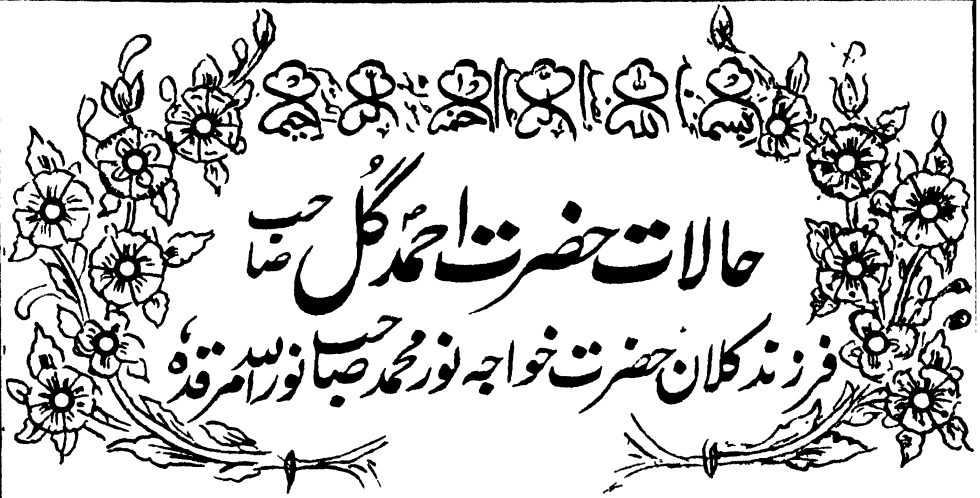 بسم الله الرحمن الرحيم
حالات حضرت احمد گُل صاحب
فرزند کلان حضرت خواجه نور محمد صاحب نور الله مرقدہٗ